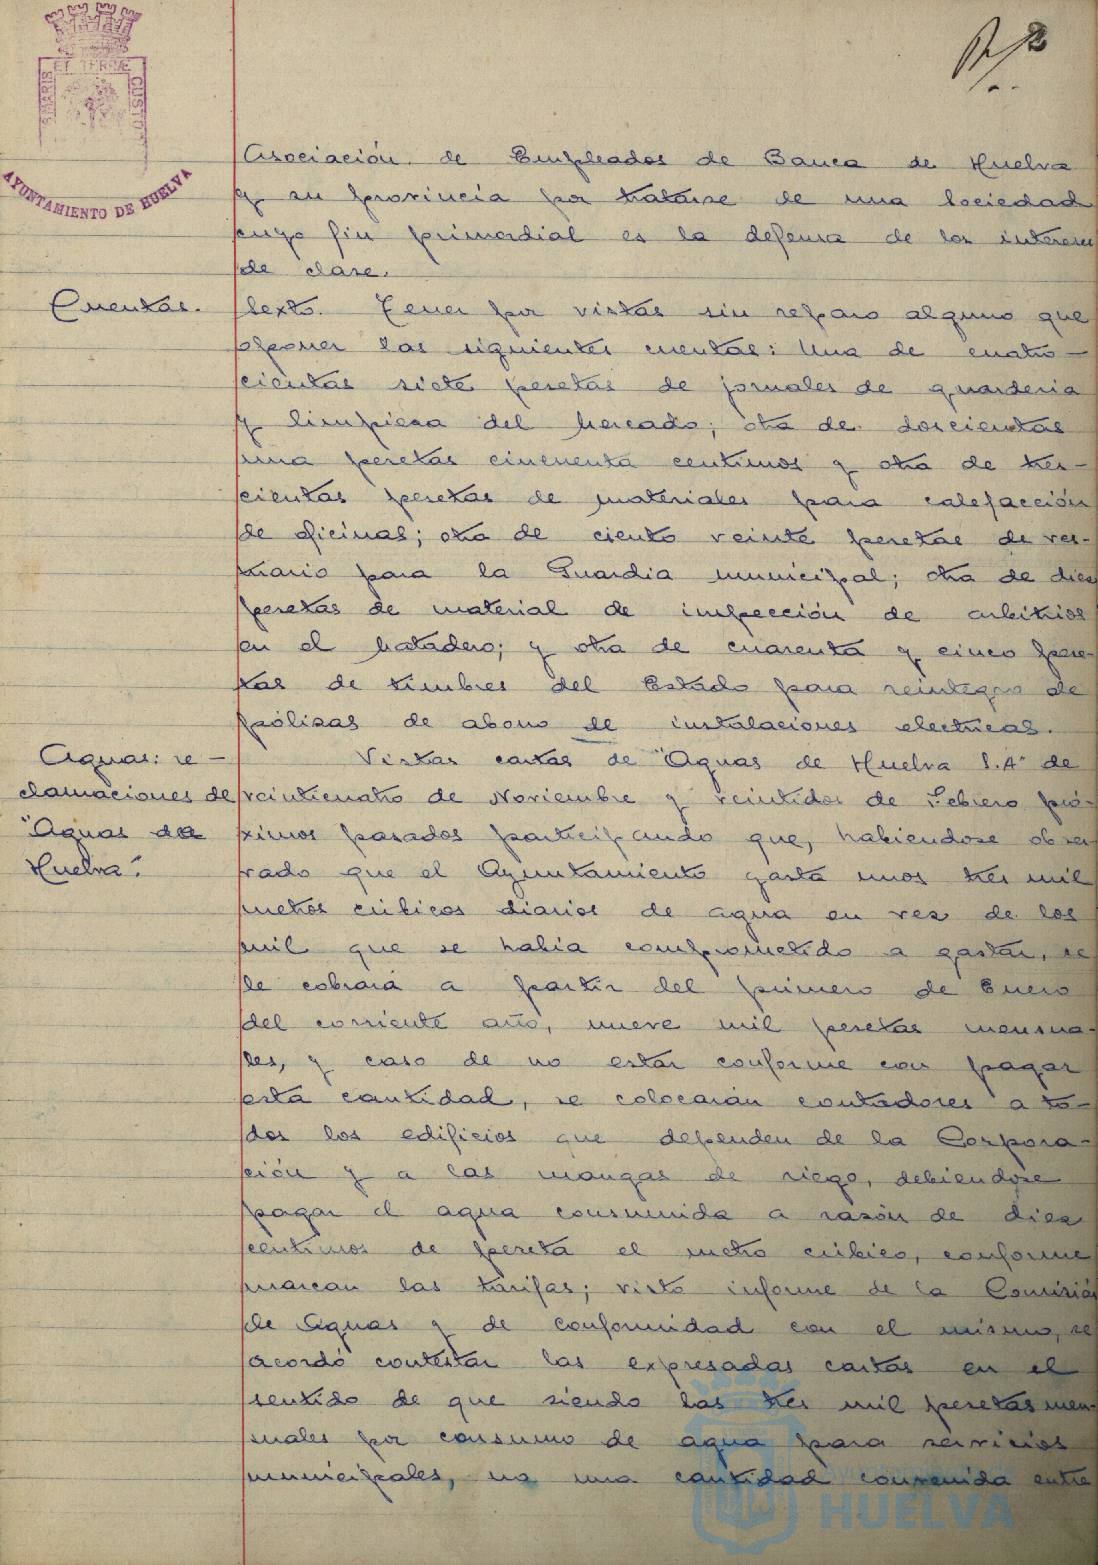 ET TERRÆ
S MARIS
CUSTO
AYUNTAMIENTO DE HUELVA
Asociación de Empleados de Banca de Huelva
y su provincia por tratarse de una Sociedad
cuyo fin primordial es la defensa de los intereses
de clase.
Cuentas.
Sexto. Tener por vistas sin reparo alguno que
oponer las siguientes cuentas: Una de cuatro-
cientas siete pesetas de jornales de guarderia
y limpieza del Mercado; otra de doscientas
una pesetas cincuenta centimos y otra de tres-
cientas pesetas de materiales para calefacción
de oficinas; otra de ciento veinte pesetas de ves-
tuario para la Guardia municipal; otra de diez
pesetas de material de inspección de arbitrios
en el Matadero; y otra de cuarenta y cinco pese-
tas de timbres del Estado para reintegro de
pólizas de abono de instalaciones electricas.
Aguas: re-
clamaciones de
"Aguas de
Huelva".
Vistas cartas de "Aguas de Huelva S.A" de
veinticuatro de Noviembre y veintidos de Febrero pró-
ximos pasados participando que, habiendose obser-
vado que el Ayuntamiento gasta unos tres mil
metros cúbicos diarios de agua en vez de los
mil que se había comprometido a gastar, se
le cobrará a partir del primero de Enero
del corriente año, nueve mil pesetas mensua-
les, y caso de no estar conforme con pagar
esta cantidad, se colocarán contadores a to-
dos los edificios que dependen de la Corpora-
ción y a las mangas de riego, debiendose
pagar el agua consumida a razón de diez
centimos de peseta el metro cúbico, conforme
marcan las tarifas; visto informe de la Comisión
de Aguas y de conformidad con el mismo, se
acordó contestar las expresadas cartas en el
sentido de que siendo las tres mil pesetas men-
suales por consumo de agua para servicios
municipales, no una cantidad convenida entre
HUELVA